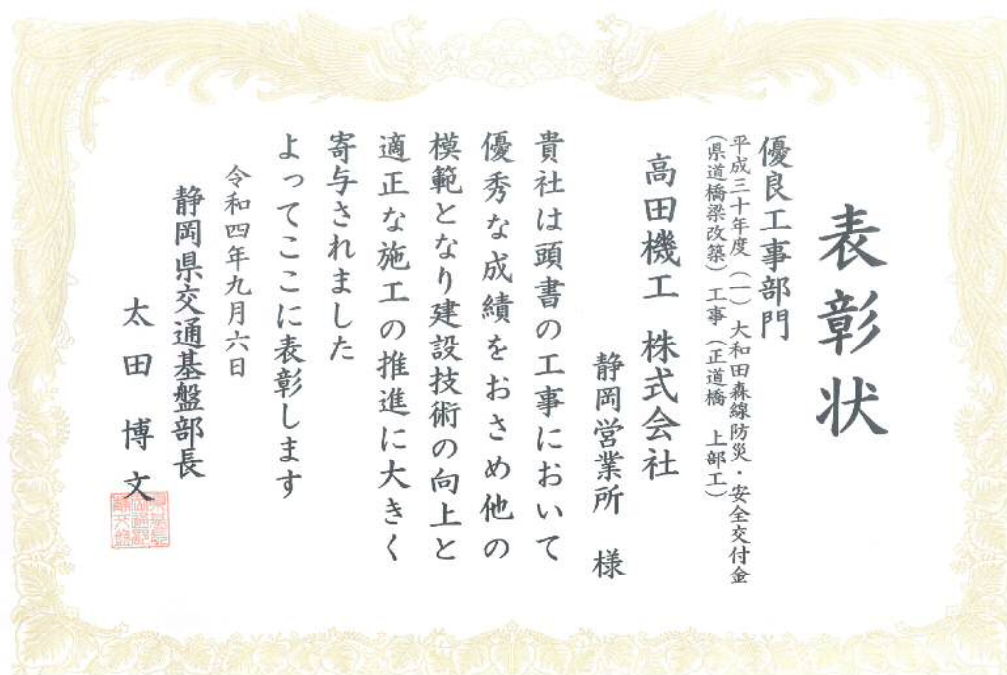 表彰状
優良工事部門
平成三十年度（一）大和田森線防災・安全交付金
（県道橋梁改築）工事（正道橋　上部工）
高田機工　株式会社
静岡営業所　様
貴社は頭書の工事において
優秀な成績をおさめ他の
模範となり建設技術の向上と
適正な施工の推進に大きく
寄与されました
よってここに表彰します
令和四年九月六日
静岡県交通基盤部長
太田　博文